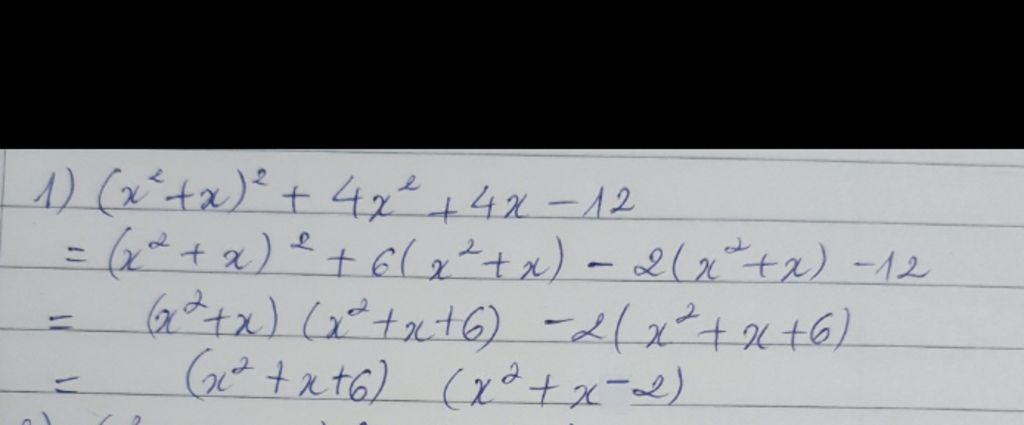 1) (x²+x)² + 4x² + 4x - 12
= (x² + x)² + 6(x²+x) - 2(x²+x) -12
= (x²+x) (x²+x+6) -2(x²+x+6)
= (x²+x+6) (x²+x-2)